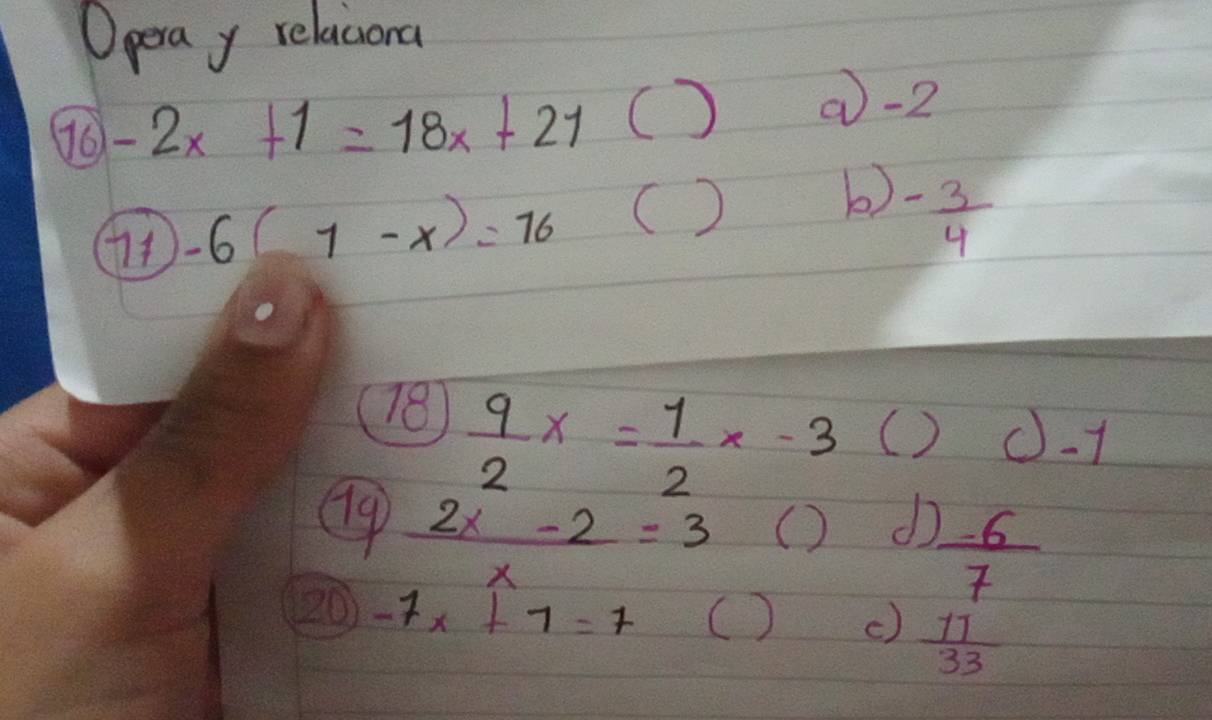 Opera y relaciona
16 -2x +1 = 18x + 21 ( ) a) -2
17 -6( 1 -x) = 16 ( ) b) - 3/4
18 9/2 x = 1/2 x - 3 ( ) c) -1
19 2x - 2 / x = 3 ( ) d) -6/7
20 -7x + 1 = 7 ( ) e) 11/33